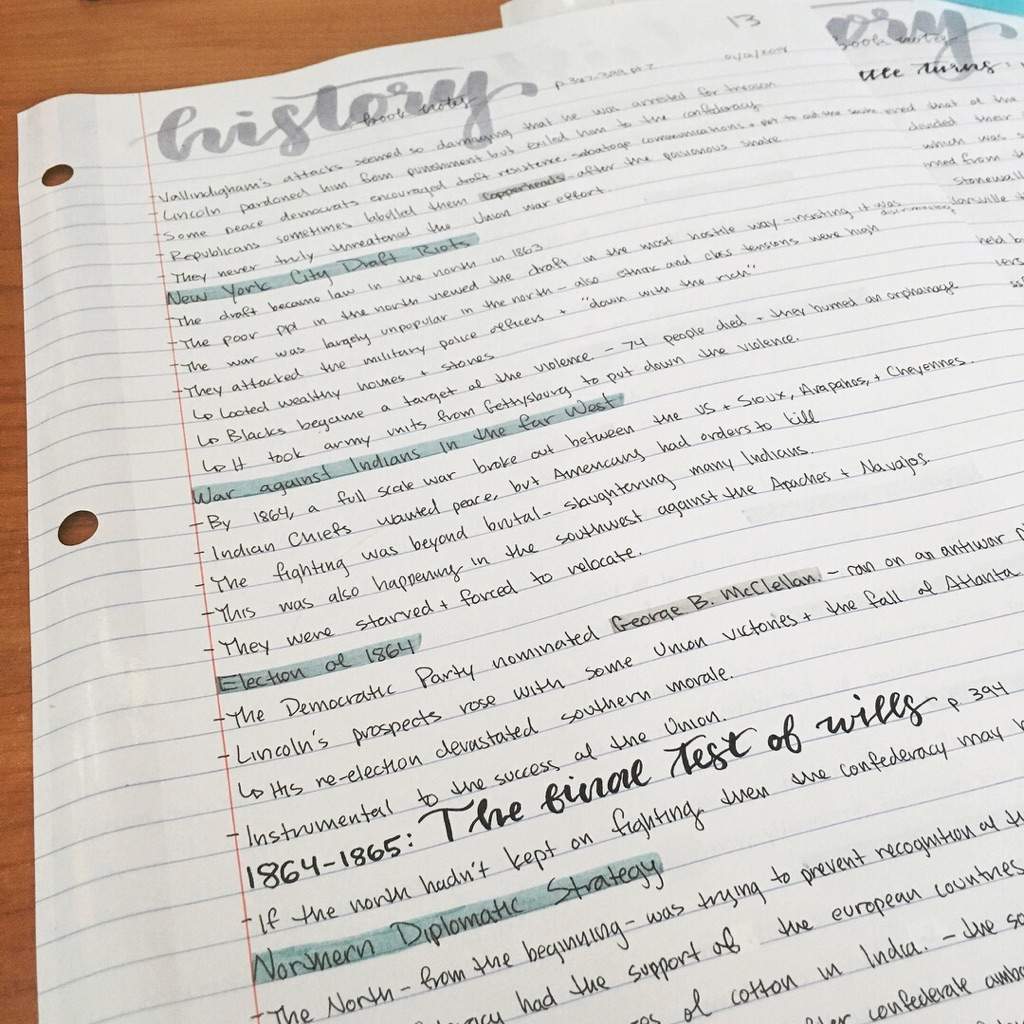 13
history
book notes
- Vallindigham's attacks seemed so damaging that he was arrested for treason
- Lincoln pardoned him from punishment but exiled him to the confederacy
- Some peace democrats encouraged draft resistence, sabotage communications +
- Republicans sometimes labelled them copperheads after the poisonous snake
- They never truly threatened the Union war effort.
New York City Draft Riots
- The draft became law in the north in 1863
- The poor ppl in the north viewed the draft in the most hostile way - insisting it was discriminatory
- The war was largely unpopular in the north - also ethnic and class tensions were high
- They attacked the military police officers + "down with the rich"
↳ Looted wealthy homes + stores
↳ Blacks became a target of the violence - 74 people died + they burned an orphanage
↳ It took army units from Gettysburg to put down the violence.
War against Indians in the far West
- By 1864, a full scale war broke out between the US + Sioux, Arapahos, + Cheyennes.
- Indian Chiefs wanted peace, but Americans had orders to kill
- The fighting was beyond brutal - slaughtering many Indians.
- This was also happening in the southwest against the Apaches + Navajos
- They were starved + forced to relocate.
Election of 1864
- The Democratic Party nominated George B. McClellan. - ran on an antiwar
- Lincoln's prospects rose with some Union victories + the fall of Atlanta
↳ His re-election devastated southern morale.
- Instrumental to the success of the Union.
1864-1865: The final Test of wills p 394
- If the north hadn't kept on fighting, then the confederacy may
Northern Diplomatic Strategy
- The North - from the beginning - was trying to prevent recognition of
had the support of the european countries
of cotton in India. - the
confederate
ory
book notes
turns
that at the
divided their
which was
from
Stonewall
held